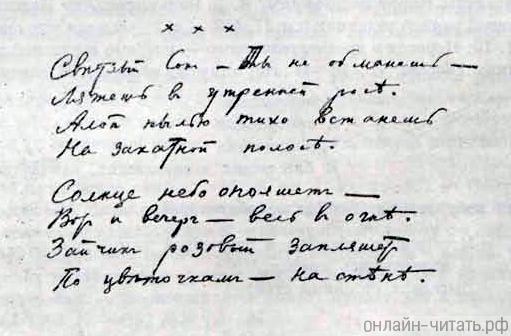 × × ×
Свѣтлый Сон – Ты не обманешь —
Ляжешь в утренней росѣ.
Алой пылью тихо встанешь
На закатной полосѣ.
Солнце небо опояшетъ —
Вот и вечеръ — весь в огнѣ.
Зайчик розовый запляшет
По цвѣточкамъ — на стѣнѣ.
онлайн-читать.рф